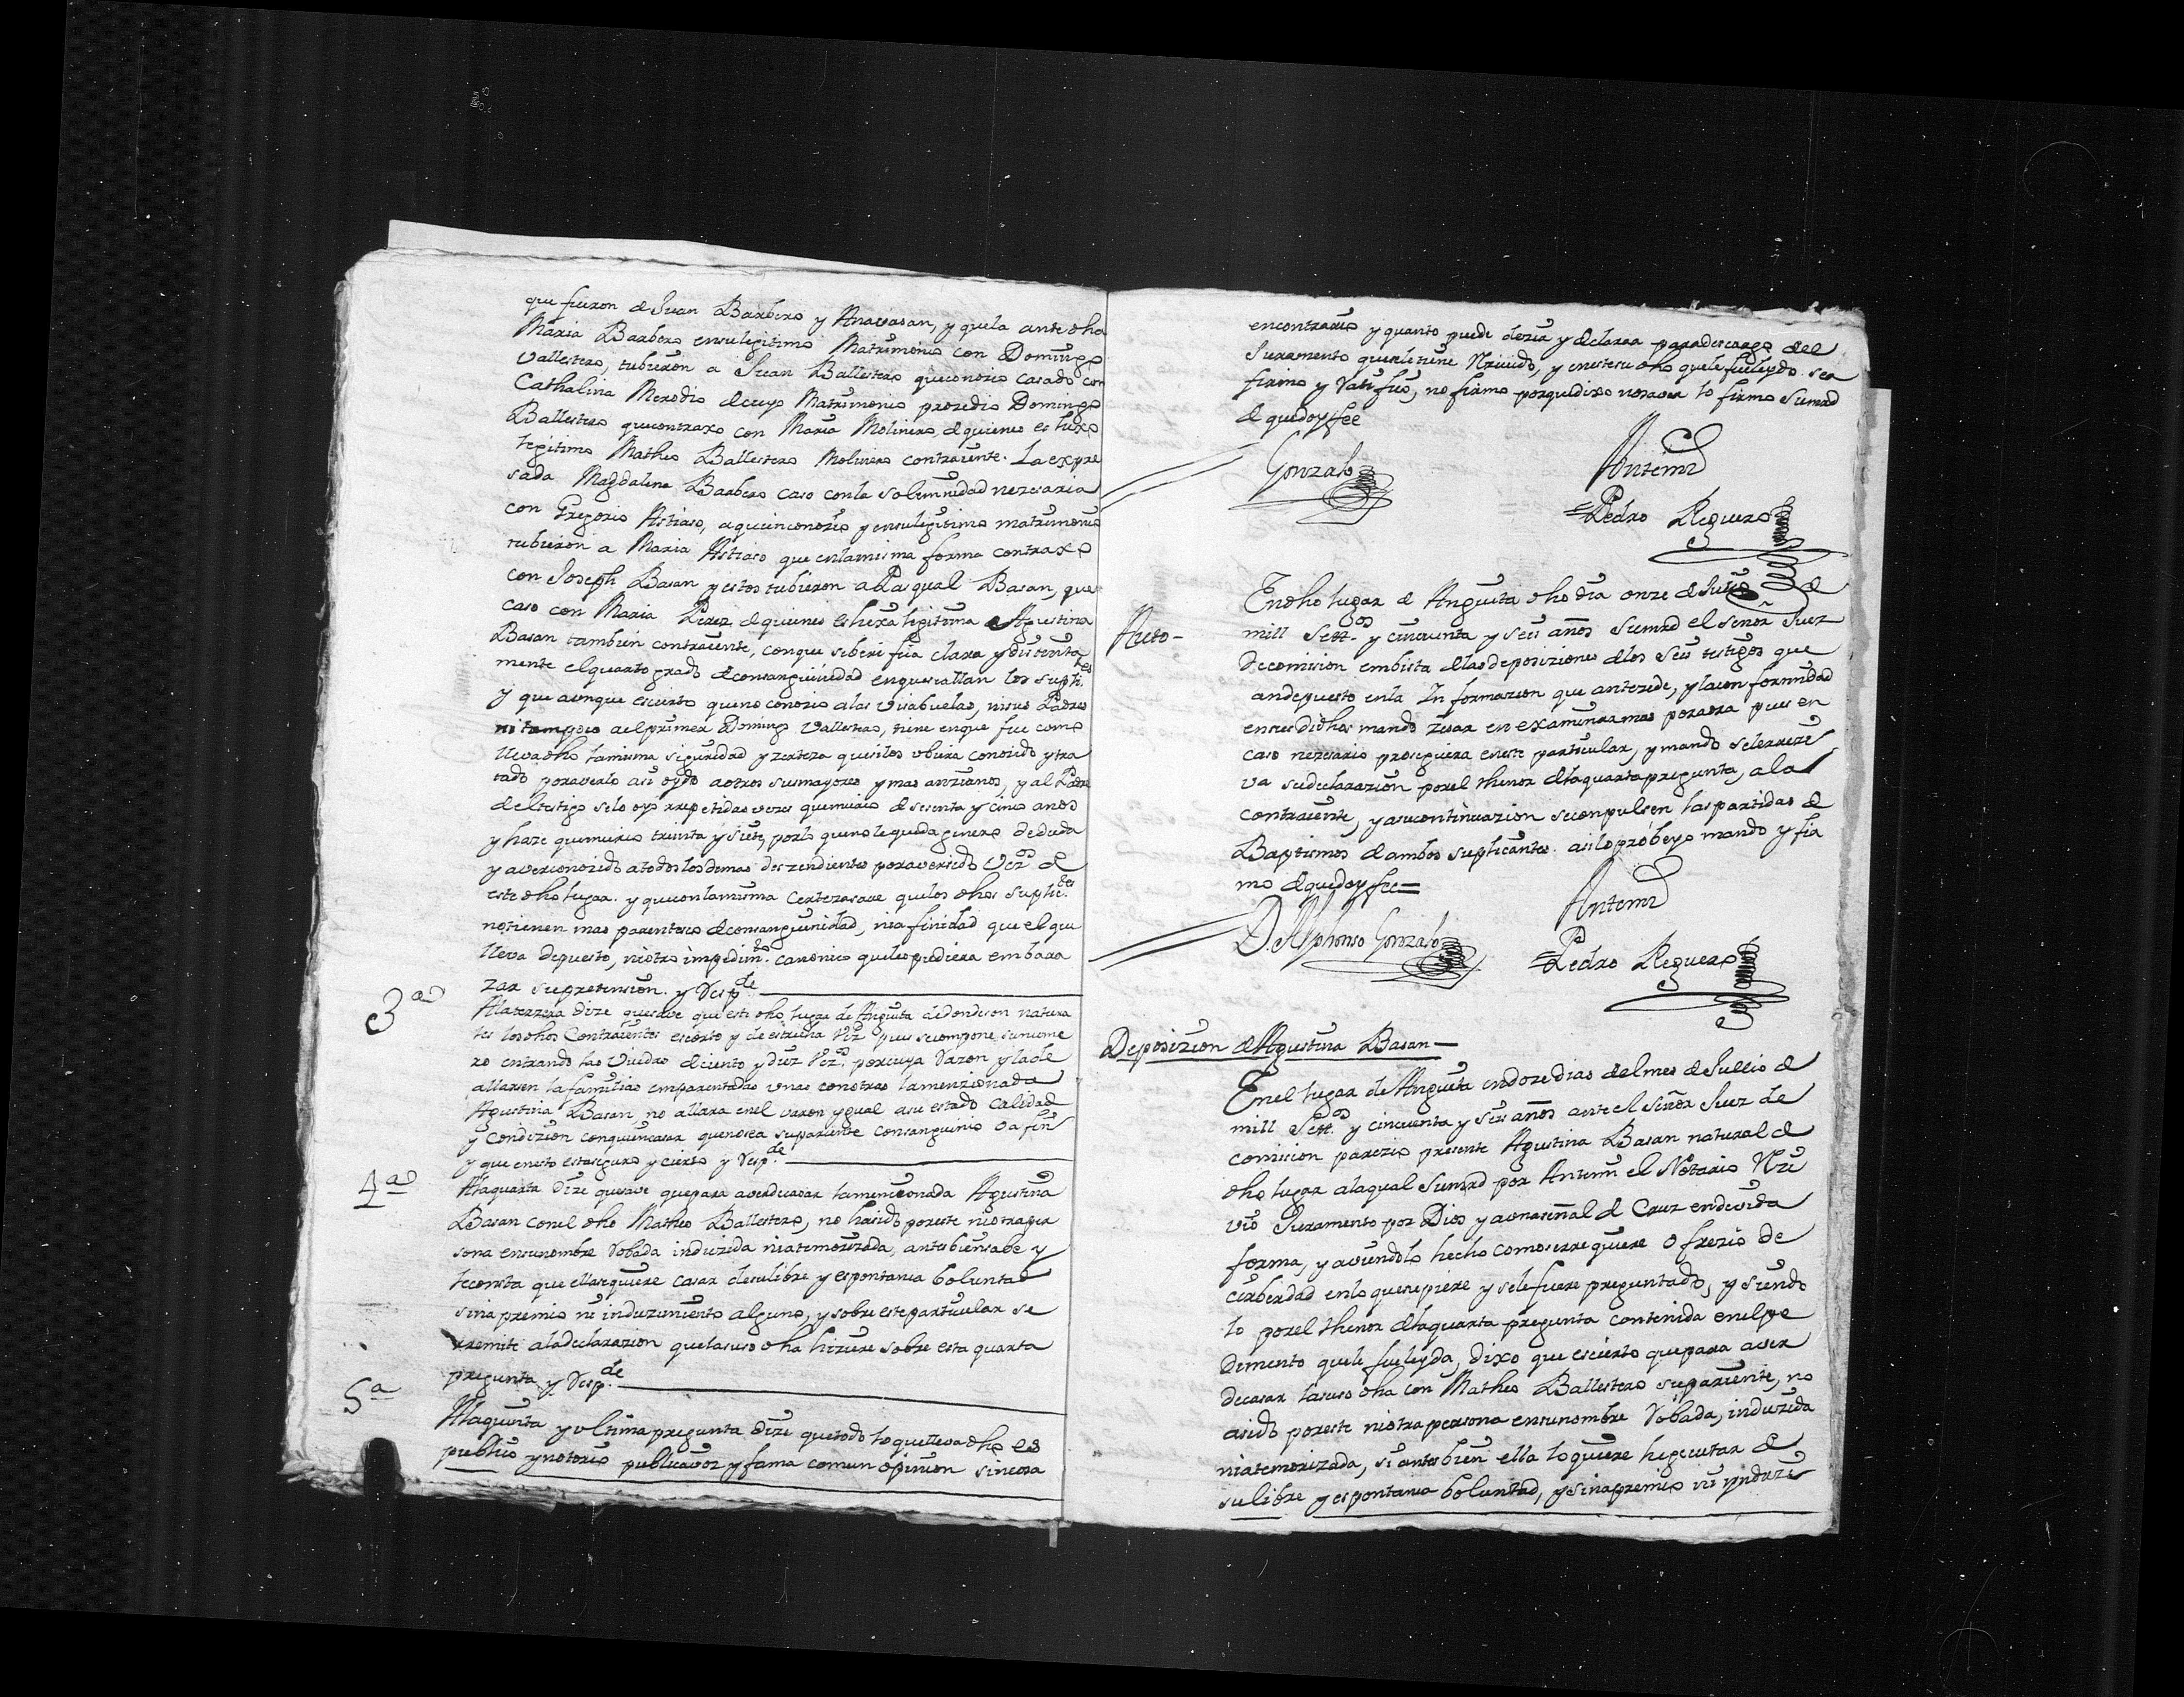 que fueron de Juan Barbero y Ana vasan, y que la ante dha
Maria Barbero en su legitimo Matrimonio con Domingo
Vallestero, tubieron a Juan Ballestero que conozio casado con
Cathalina Merodio de cuyo Matrimonio prozedio Domingo
Ballestero que contraxo con Maria Molinero, de quienes es hixo
legitimo Matheo Ballestero Molinero contraiente. La expre
sada Magdalena Barbero caso con la solemnidad nezesaria
con Gregorio Astiaso, a quien conozio y en su legitimo matrimonio
tubieron a Maria Astiaso que en la misma forma contraxo
con Joseph Basan y estos tubieron a Pasqual Basan, que
caso con Maria Perez de quienes es hixa legitima Agustina
Basan tambien contraiente, con que se berifica clara y distinta
mente el quarto grado de consanguinidad en que se allan los supli.tes
y que aunque es cierto que no conozio a las visabuelas, ni sus Padres
ni tampoco a el primer Domingo Vallestero, tiene en que fue como
lleva dho la misma siguridad y zerteza que si los ubiera conozido y tra
tado por averlo asi oydo a otros sus mayores y mas anzianos, y al Padre
del testigo se lo oyo rrepetidas vezes que murio de sesenta y cinco anos
y haze que murio treinta y siete, por lo que no le queda genero de duda
y aver conozido a todos los demas deszendientes por aver sido Vez.os de
este dho lugar. y que con la misma certeza save que los dhos suplic.tes
no tienen mas parentesco de consanguinidad, ni afinidad que el que
lleva depuesto, ni otro impedim.to canonico que les pudiera embara
zar su pretension. y Resp.de
3.a
A la terzera dize que save que este dho lugar de Anguita de donde son natura
les los dhos Contraientes es corto y de estrecha Vez.d pues se compone su nume
ro entrando las Viudas de ciento y diez Vez.os por cuya Razon y la de
allarsen las familias emparentadas unas con otras la menzionada
Agustina Basan no allara en el varon ygual a su estado Calidad
y Condizion con quien casar que no sea su pariente consanguineo o afin
y que en esto esta seguro y cierto y Resp.de
4.a
A la quarta dize que save que para aver de casar la menzionada Agustina
Basan con el dho Matheo Ballestero, no ha sido por este ni otra per
sona en su nombre Robada induzida ni atemorizada, antes bien sabe y
le consta que ella se quiere casar de su libre y espontanea boluntad
sin apremio ni induzimiento alguno, y sobre este particular se
rremite a la declarazion que la suso dha hiziere sobre esta quarta
pregunta y Resp.de
5.a
A la quinta y ultima pregunta dize que todo lo que lleva dho es
publico y notorio publica voz y fama comun opinion sin cosa
encontrario y quanto puede dezir y declarar para descargo del
Juramento que echo tiene Rezivido, y en este su dho que le fue leydo se a
firmo y Ratifico, no firmo porque dixo no saver lo firmo Su mrd
de que doy fee
Gonzalo
Ante mi
Pedro Reguero
Auto-
En dho lugar de Anguita dho dia onze de Julio de
mill Sett.os y cinquenta y seis años Su mrd el señor Juez
de comision en bista de las deposiziones de los seis testigos que
an depuesto en la Informazion que antezede, y la conformidad
en sus dichos mando zesar en examinar mas por aora pues en
caso nezesario proseguira en este particular, y mando se le rrezi
va su declarazion por el thenor de la quarta pregunta, a la
contraiente, y a su continuazion se conpulsen las partidas de
Baptismos de ambos suplicantes. asi lo probeyo mando y fir
mo de que doy fee=
D. Alphonso Gonzalo
Ante mi
Pedro Reguero
Deposizion de Agustina Basan-
En el lugar de Anguita en doze dias del mes de Jullio de
mill Sett.os y cinquenta y seis años ante el señor Juez de
comision parezio presente Agustina Basan natural de
dho lugar a la qual Su mrd por Ante mi el Notario Rezi
vio Juramento por Dios y a una señal de Cruz en devida
forma, y aviendolo hecho como se rrequiere ofrezio de
cir berdad en lo que supiere y se le fuere preguntado, y siendo
lo por el thenor de la quarta pregunta contenida en el pe
dimento que le fue leyda, dixo que es cierto que para aver
de casar la suso dha con Matheo Ballestero su pariente, no
a sido por este ni otra persona en su nombre Robada, induzida
ni atemorizada, si antes bien ella lo quiere hegecutar de
su libre y espontanea boluntad, y sin apremio ni ynduzi